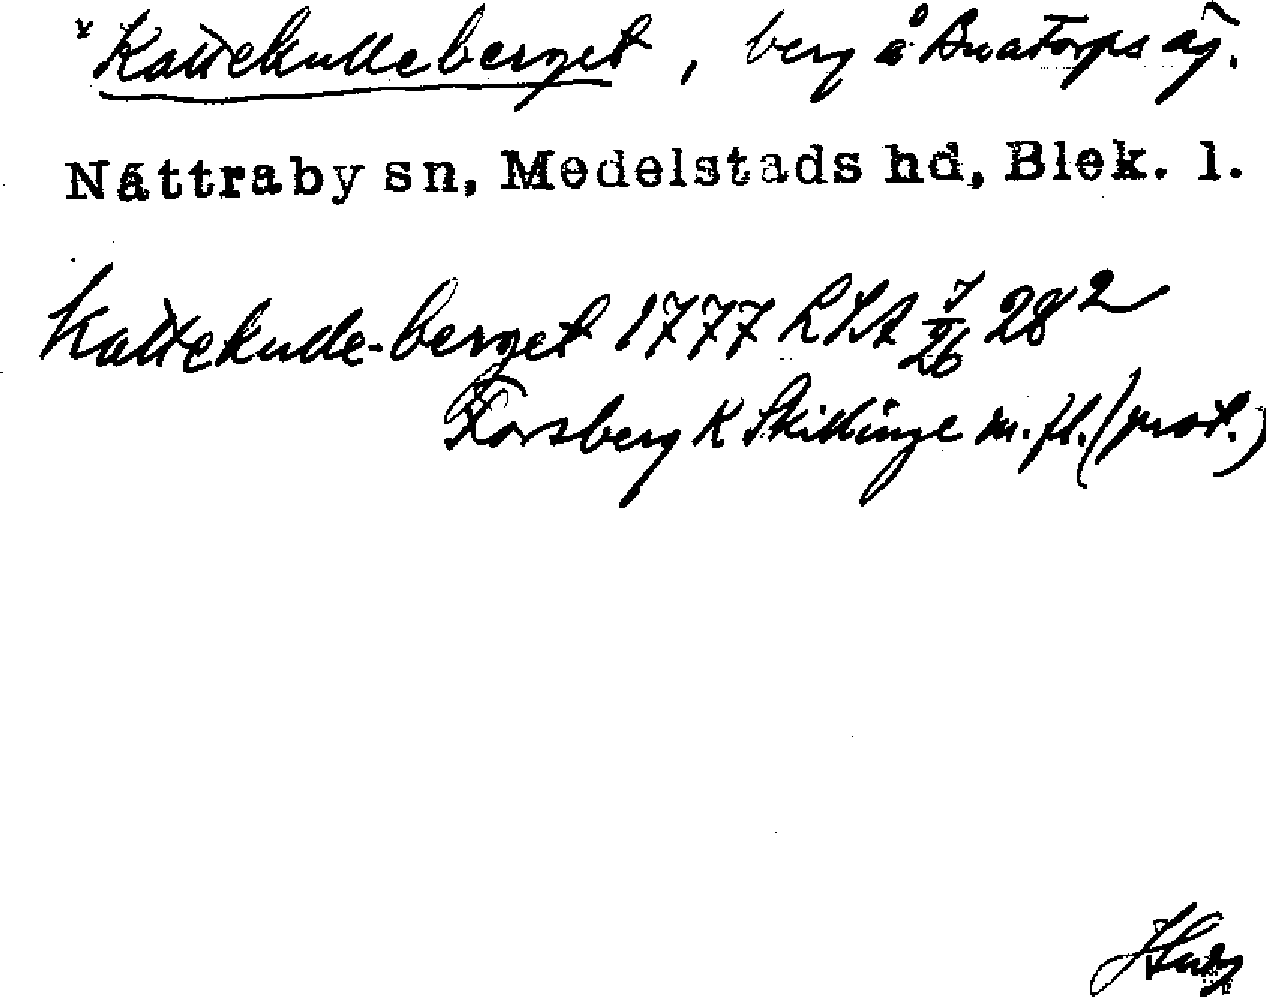 * Kattekulleberget, berg å Buatorps äg.
Nättraby sn, Medelstads hd, Blek. l.
Kattekulle-berget 1777 LSA 7/26 28²
Forsberg K Skillinge m.fl. (prot.)